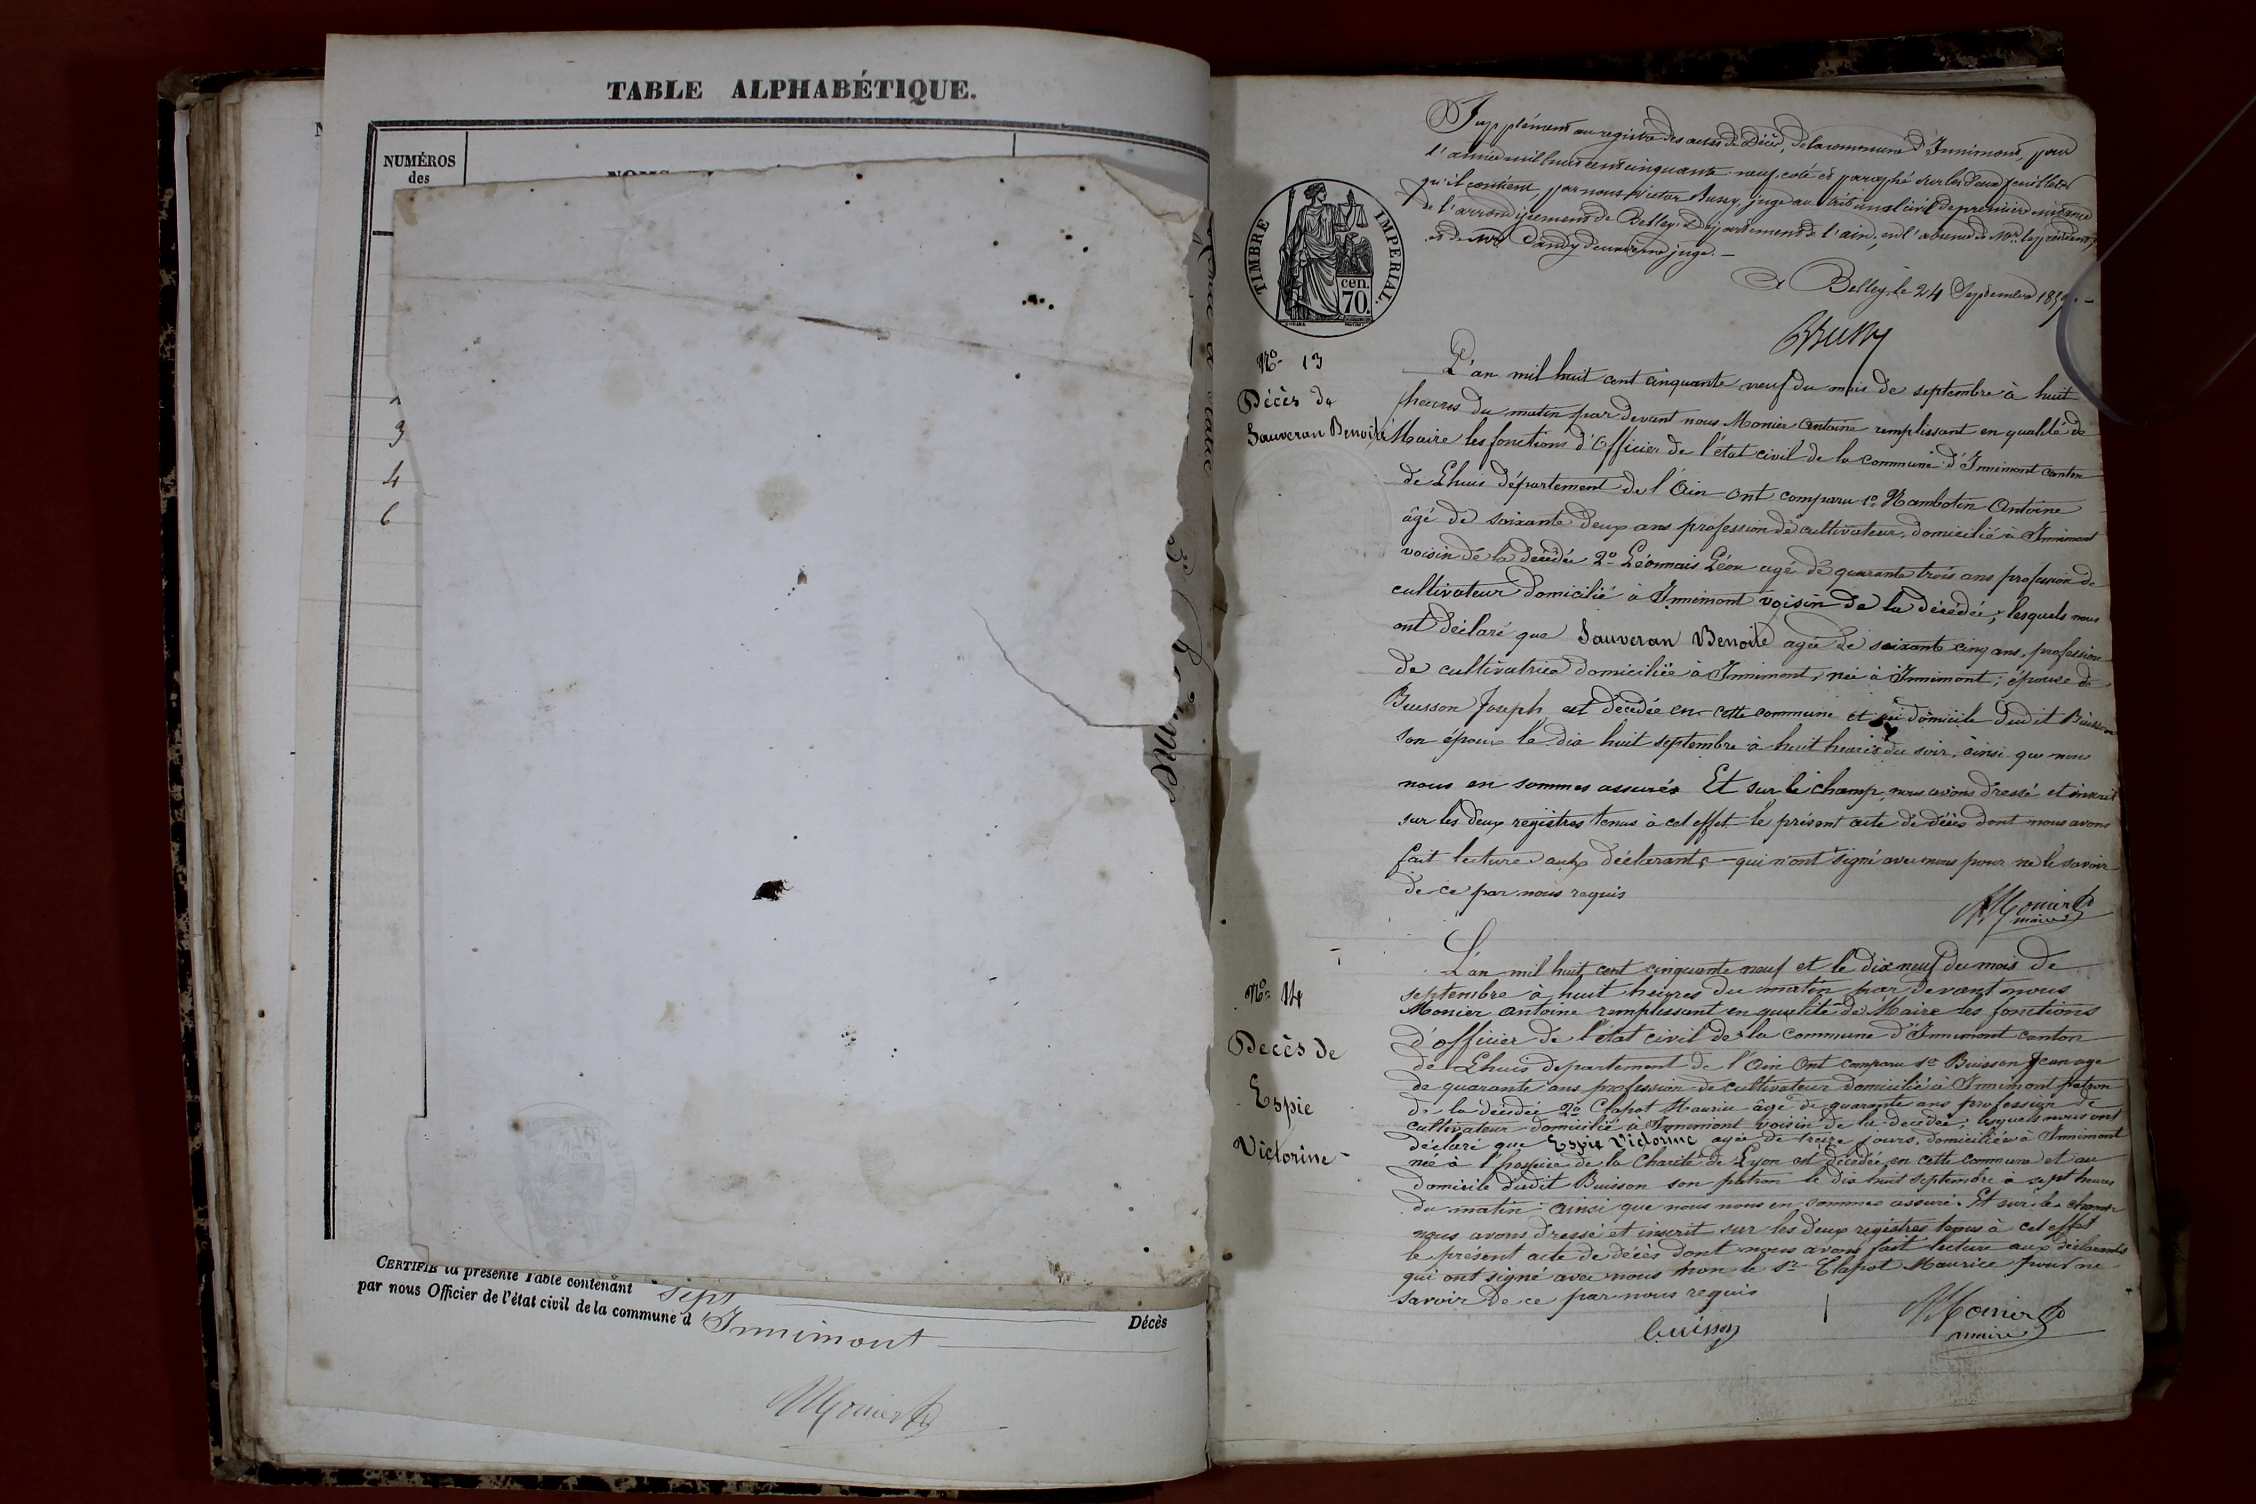 TABLE ALPHABÉTIQUE.
NUMÉROS
des
3
4
6
CERTIFIÉ la présente Table contenant sept
Décès
par nous Officier de l'état civil de la commune d'Innimont
AMonier
Supplément au registre des actes de Décès, de la commune d'Innimont, pour
l'année mil huit cent cinquante neuf, coté et paraphé sur les deux feuillets
qu'il contient, par nous Victor Bussy, juge au tribunal civil de première instance
de l'arrondissement de Belley, Département de l'ain, en l'absence de Mr. le président,
et de Mr. Candy deuxième juge. —
A Belley, le 24 Septembre 1859. —
Bussy
TIMBRE IMPERIAL.
cen.
70.
No. 13
Décès de
Sauveran Benoite
L'an mil huit cent cinquante neuf du mois de septembre à huit
heures du matin par devant nous Monier Antoine remplissant en qualité de
Maire les fonctions d'Officier de l'état civil de la commune d'Innimont canton
de Lhuis département de l'Ain ont comparu 1o Nambotin Antoine
âgé de soixante deux ans profession de cultivateur, domicilié à Innimont
voisin de la décédée 2o Léonnais Léon agé de quarante trois ans profession de
cultivateur domicilié à Innimont voisin de la décédée, lesquels nous
ont déclaré que Sauveran Benoite agée de soixante cinq ans, profession
de cultivatrice domiciliée à Innimont, née à Innimont; épouse de
Buisson Joseph est décédée en cette commune et au domicile dudit Buisson
son époux le dix huit septembre à huit heures du soir, ainsi que nous
nous en sommes assurés Et sur le champ, nous avons dressé et inscrit
sur les deux registres tenus à cet effet le présent acte de décès dont nous avons
fait lecture aux déclarants — qui n'ont signé avec nous pour ne le savoir
de ce par nous requis
AMonier
maire
No. 14
Decès de
Espie
Victorine —
L'an mil huit cent cinquante neuf et le dix neuf du mois de
septembre à huit heures du matin par devant nous
Monier Antoine remplissant en qualité de Maire les fonctions
d'officier de l'état civil de la commune d'Innimont canton
de Lhuis departement de l'Ain Ont comparu 1o Buisson Jean age
de quarante ans profession de cultivateur domicilié à Innimont patron
de la décédée 2o Clapot Maurice âgé de quarante ans profession de
cultivateur domicilié à Innimont voisin de la decédée; lesquels nous ont
déclaré que Espie Victorine agée de treize jours, domiciliée à Innimont
née à l'hospice de la Charité de Lyon est décédée en cette commune et au
domicile dudit Buisson son patron le dix huit septembre à sept heures
du matin ainsi que nous nous en sommes assuré. Et sur le champ
nous avons dressé et inscrit sur les deux registres tenus à cet effet
le présent acte de décès dont nous avons fait lecture aux déclarants
qui ont signé avec nous non le sr. Clapot Maurice pour ne
savoir de ce par nous requis
buisson
AMonier
maire